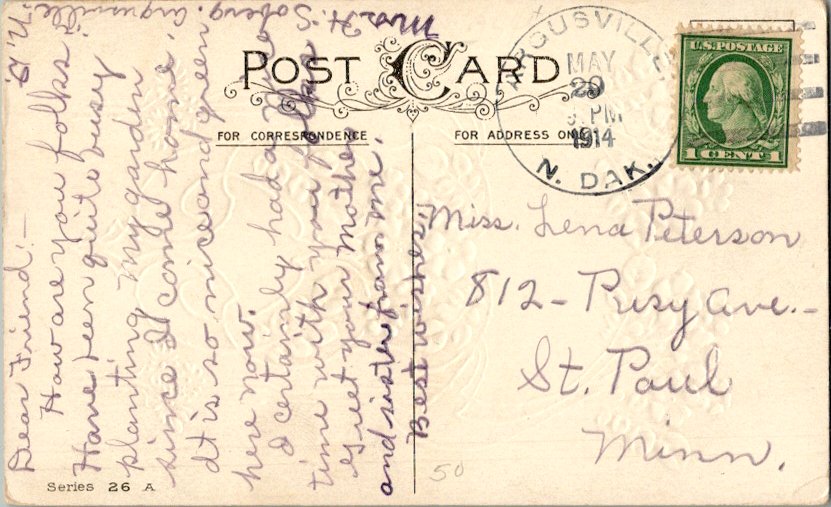 POST CARD
FOR CORRESPONDENCE
FOR ADDRESS ONLY
ARGUSVILLE
MAY
29
PM
1914
N. DAK.
U.S. POSTAGE
1 CENT 1
Dear Friend:-
How are you folks?
Have been quite busy
planting my garden
since I come home,
It is so nice and green
here now.
I certainly had a
time with you folks
Greet your Mother
and sister from me.
Best wishes,
Mrs. H. Soberg. Argusville.
N.D.
Miss. Lena Peterson
812- Pusy Ave.-
St. Paul
Minn.
50
Series 26 A